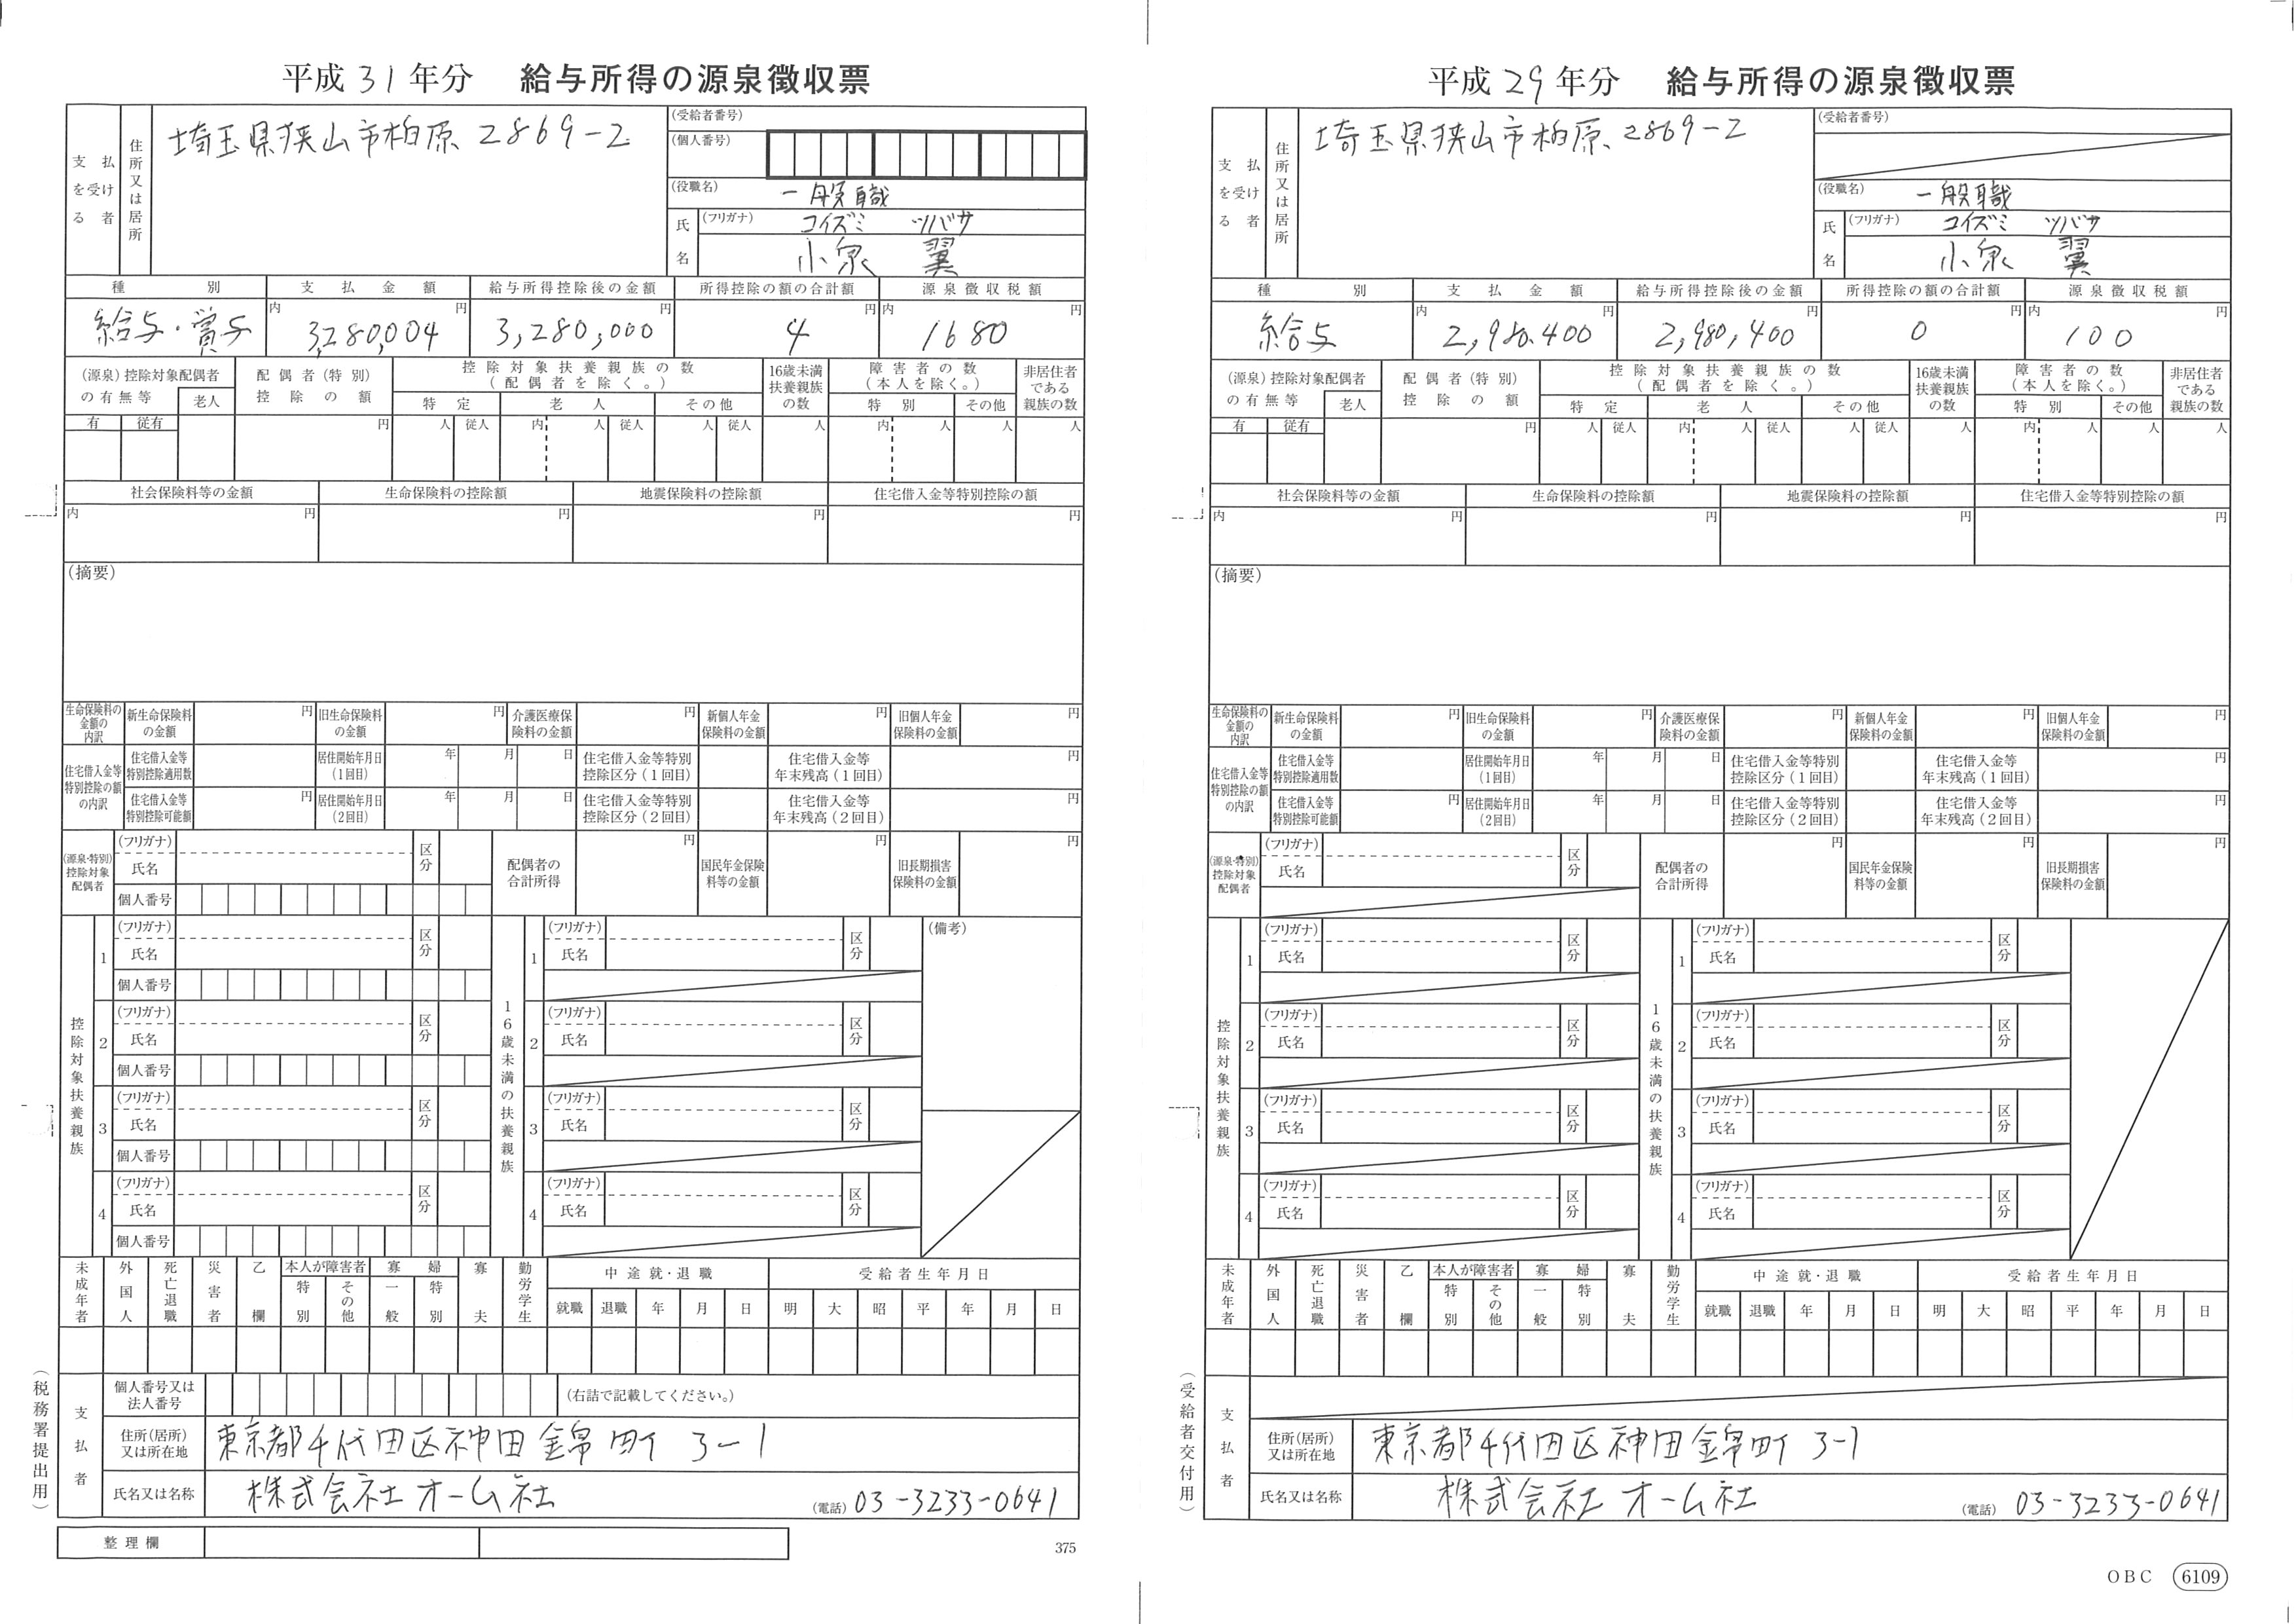 平成31年分 給与所得の源泉徴収票
支払を受ける者
住所又は居所
埼玉県狭山市柏原2869-2
(受給者番号)
(個人番号)
(役職名) 一般職
氏名
(フリガナ) コイズミ ツバサ
小泉 翼
種別 支払金額 給与所得控除後の金額 所得控除の額の合計額 源泉徴収税額
内 円 円 円 内 円
給与・賞与 3,280,004 3,280,000 4 1680
(源泉)控除対象配偶者の有無等 老人 配偶者(特別)控除の額 控除対象扶養親族の数(配偶者を除く。) 16歳未満扶養親族の数 障害者の数(本人を除く。) 非居住者である親族の数
特定 老人 その他 特別 その他
有 従有 円 人 従人 内 人 従人 人 従人 人 内 人 人 人
社会保険料等の金額 生命保険料の控除額 地震保険料の控除額 住宅借入金等特別控除の額
内 円 円 円 円
(摘要)
生命保険料の金額の内訳 新生命保険料の金額 円 旧生命保険料の金額 円 介護医療保険料の金額 円 新個人年金保険料の金額 円 旧個人年金保険料の金額 円
住宅借入金等特別控除の額の内訳
住宅借入金等特別控除適用数 居住開始年月日(1回目) 年 月 日 住宅借入金等特別控除区分(1回目) 住宅借入金等年末残高(1回目) 円
住宅借入金等特別控除可能額 円 居住開始年月日(2回目) 年 月 日 住宅借入金等特別控除区分(2回目) 住宅借入金等年末残高(2回目) 円
(源泉・特別)控除対象配偶者
(フリガナ)
氏名
区分
個人番号
配偶者の合計所得 円 国民年金保険料等の金額 円 旧長期損害保険料の金額 円
控除対象扶養親族
1 (フリガナ) 氏名 区分 個人番号
2 (フリガナ) 氏名 区分 個人番号
3 (フリガナ) 氏名 区分 個人番号
4 (フリガナ) 氏名 区分 個人番号
16歳未満の扶養親族
1 (フリガナ) 氏名 区分
2 (フリガナ) 氏名 区分
3 (フリガナ) 氏名 区分
4 (フリガナ) 氏名 区分
(備考)
未成年者 外国人 死亡退職 災害者 乙欄 本人が障害者 特別 その他 寡婦 一般 特別 寡夫 勤労学生 中途就・退職 受給者生年月日
就職 退職 年 月 日 明 大 昭 平 年 月 日
(税務署提出用)
支払者
個人番号又は法人番号 (右詰で記載してください。)
住所(居所)又は所在地 東京都千代田区神田錦町3-1
氏名又は名称 株式会社オーム社 (電話) 03-3233-0641
整理欄
375
平成29年分 給与所得の源泉徴収票
支払を受ける者
住所又は居所
埼玉県狭山市柏原2869-2
(受給者番号)
(役職名) 一般職
氏名
(フリガナ) コイズミ ツバサ
小泉 翼
種別 支払金額 給与所得控除後の金額 所得控除の額の合計額 源泉徴収税額
内 円 円 円 内 円
給与 2,980.400 2,980,400 0 100
(源泉)控除対象配偶者の有無等 老人 配偶者(特別)控除の額 控除対象扶養親族の数(配偶者を除く。) 16歳未満扶養親族の数 障害者の数(本人を除く。) 非居住者である親族の数
特定 老人 その他 特別 その他
有 従有 円 人 従人 内 人 従人 人 従人 人 内 人 人 人
社会保険料等の金額 生命保険料の控除額 地震保険料の控除額 住宅借入金等特別控除の額
内 円 円 円 円
(摘要)
生命保険料の金額の内訳 新生命保険料の金額 円 旧生命保険料の金額 円 介護医療保険料の金額 円 新個人年金保険料の金額 円 旧個人年金保険料の金額 円
住宅借入金等特別控除の額の内訳
住宅借入金等特別控除適用数 居住開始年月日(1回目) 年 月 日 住宅借入金等特別控除区分(1回目) 住宅借入金等年末残高(1回目) 円
住宅借入金等特別控除可能額 円 居住開始年月日(2回目) 年 月 日 住宅借入金等特別控除区分(2回目) 住宅借入金等年末残高(2回目) 円
(源泉・特別)控除対象配偶者
(フリガナ)
氏名
区分
配偶者の合計所得 円 国民年金保険料等の金額 円 旧長期損害保険料の金額 円
控除対象扶養親族
1 (フリガナ) 氏名 区分
2 (フリガナ) 氏名 区分
3 (フリガナ) 氏名 区分
4 (フリガナ) 氏名 区分
16歳未満の扶養親族
1 (フリガナ) 氏名 区分
2 (フリガナ) 氏名 区分
3 (フリガナ) 氏名 区分
4 (フリガナ) 氏名 区分
未成年者 外国人 死亡退職 災害者 乙欄 本人が障害者 特別 その他 寡婦 一般 特別 寡夫 勤労学生 中途就・退職 受給者生年月日
就職 退職 年 月 日 明 大 昭 平 年 月 日
(受給者交付用)
支払者
住所(居所)又は所在地 東京都千代田区神田錦町3-1
氏名又は名称 株式会社オーム社 (電話) 03-3233-0641
OBC 6109